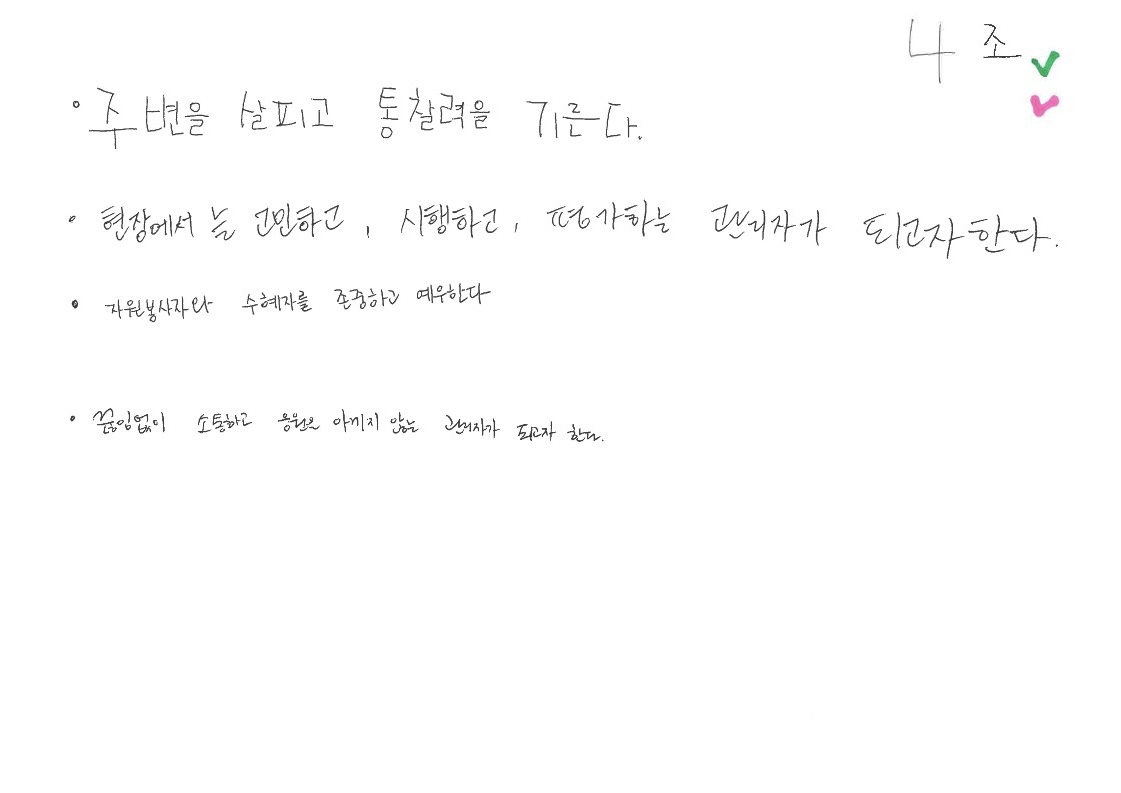 4조
• 주변을 살피고 통찰력을 기른다.
• 현장에서 늘 고민하고, 시행하고, 평가하는 관리자가 되고자한다.
• 자원봉사자와 수혜자를 존중하고 예우한다
• 끊임없이 소통하고 응원을 아끼지 않는 관리자가 되고자 한다.